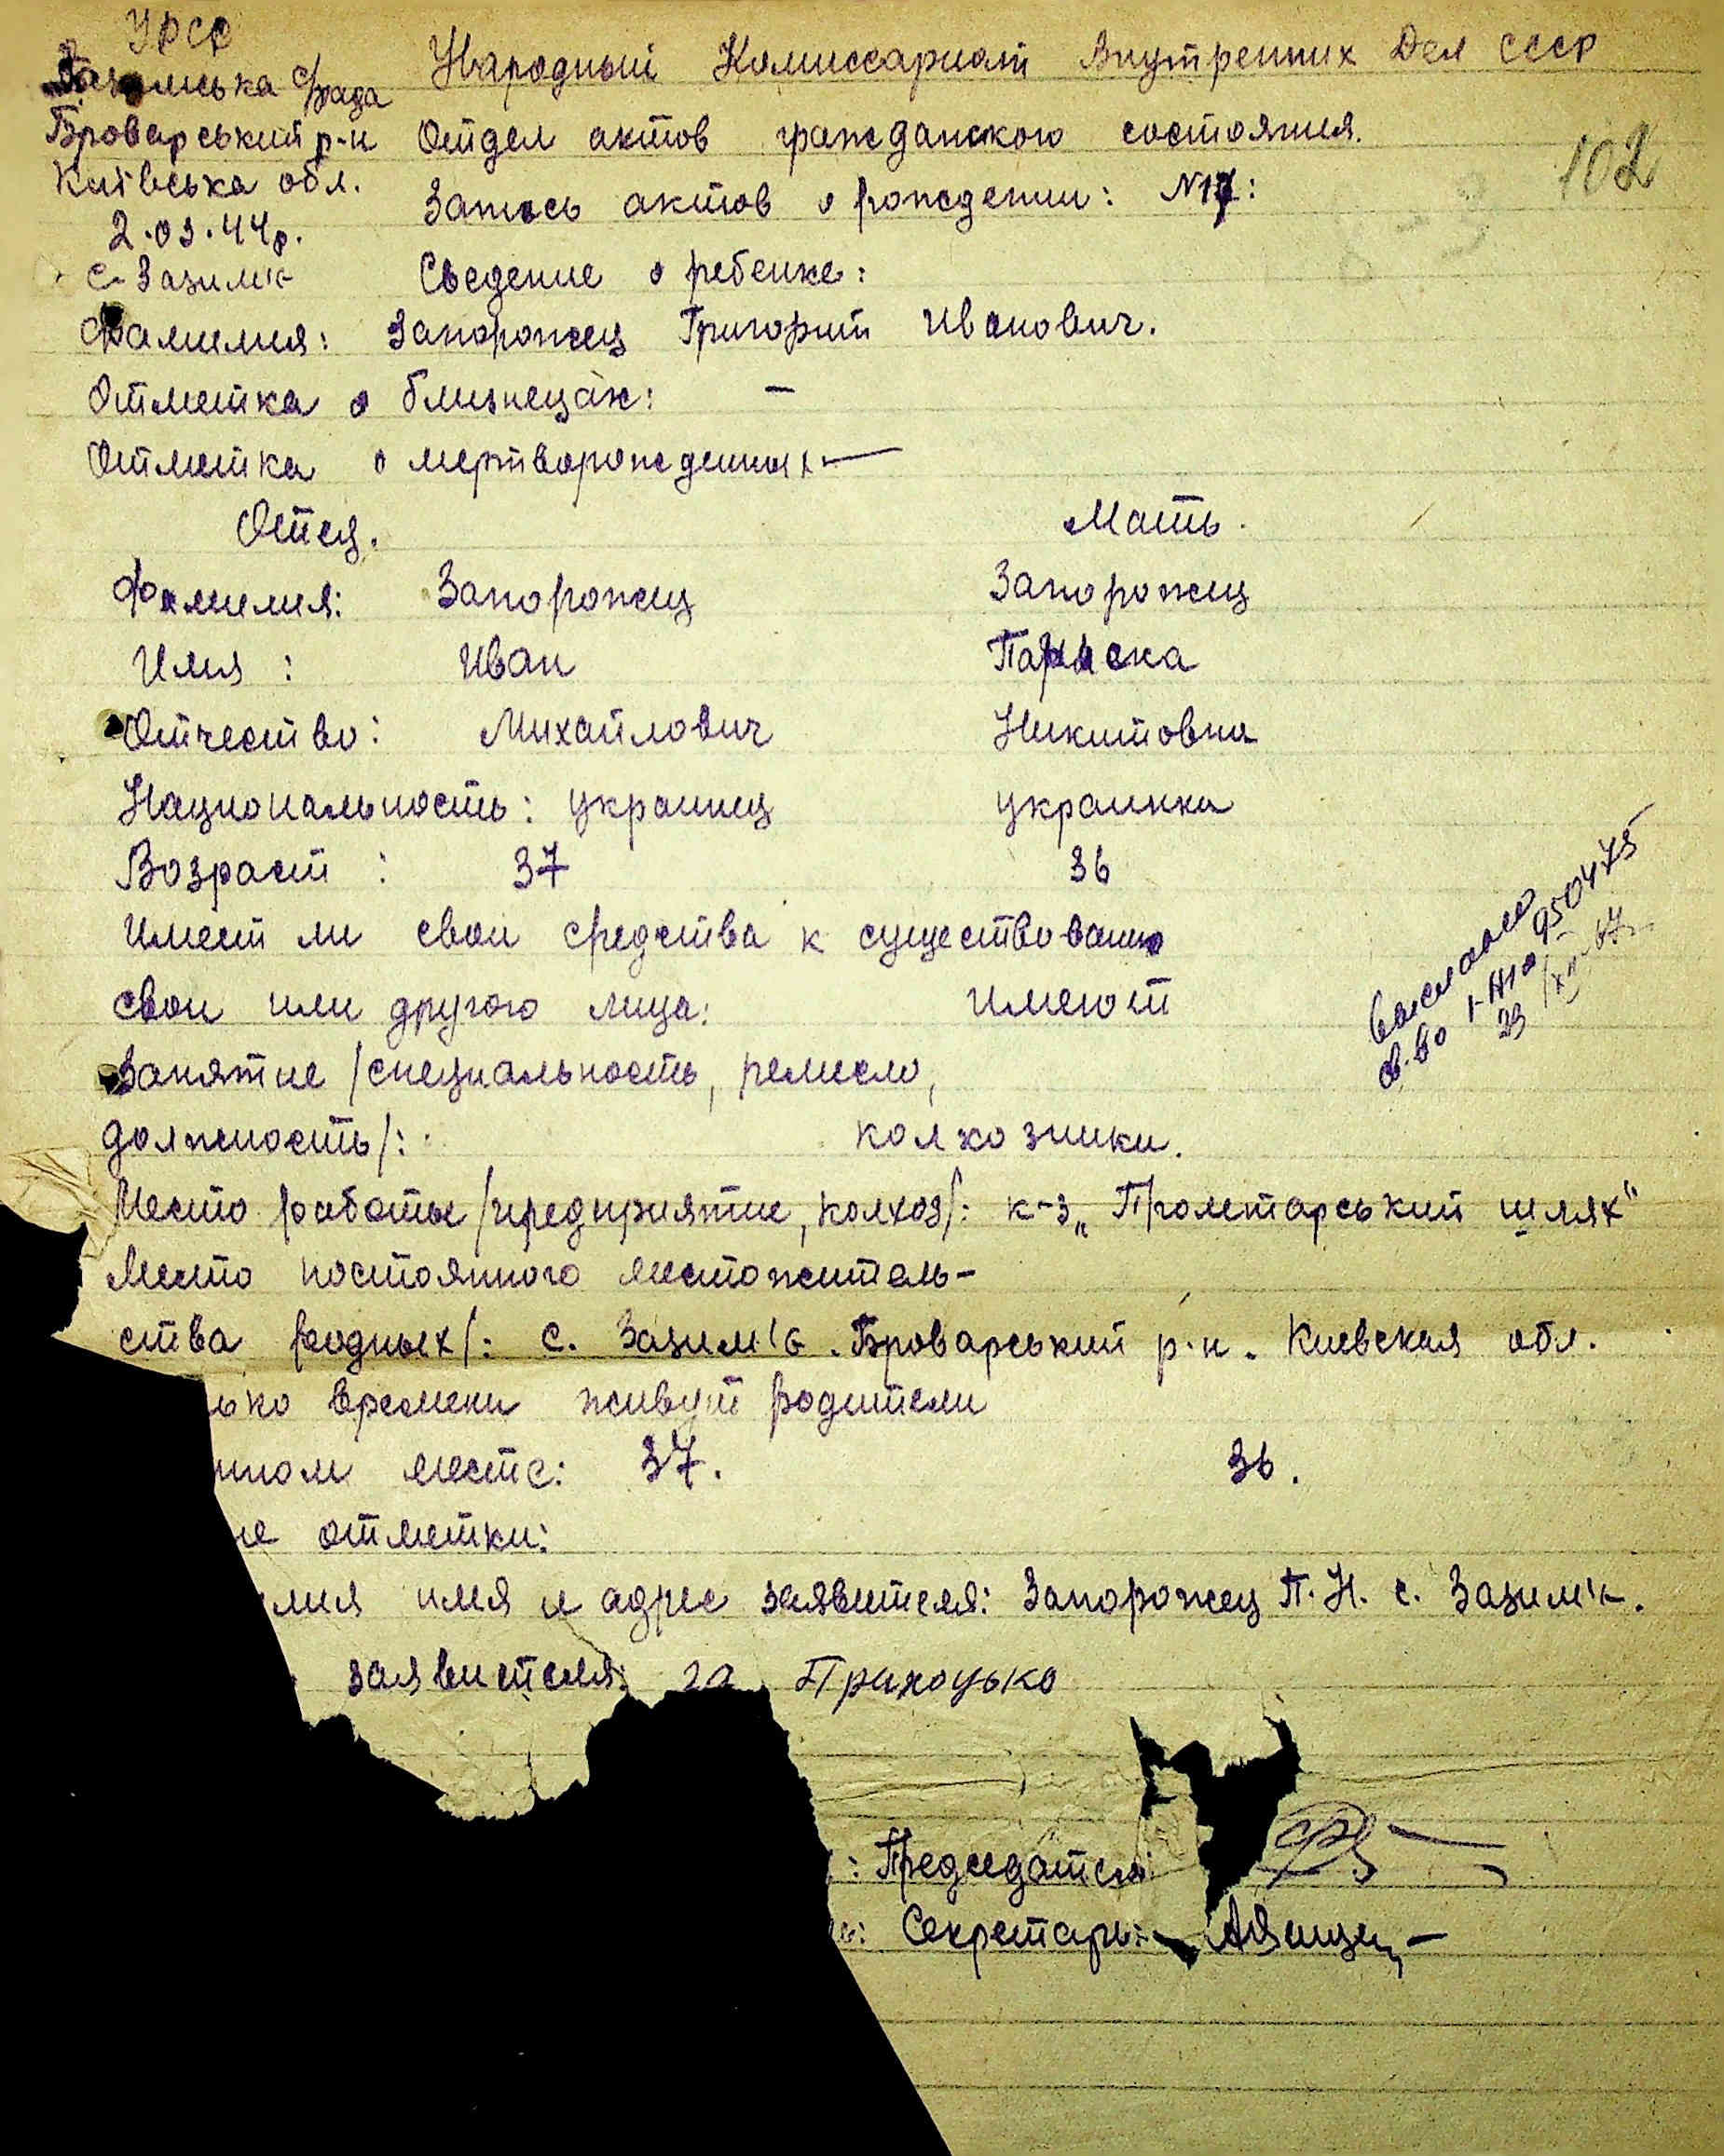 УРСР
с/рада
Броварський р-н
Київська обл.
2.03.44р.
с-Зазим'є
102
Народный Комиссариат Внутренних Дел СССР
Отдел актов гражданского состояния.
Запись актов о рождении: №17:
Сведение о ребенке:
Фамилия: Запорожец Григорий Иванович.
Отметка о близнецах: —
Отметка о мертворожденных —
Отец. Мать.
Фамилия: Запорожец Запорожец
Имя: Иван Параска
Отчество: Михайлович Никитовна
Национальность: украинец украинка
Возраст: 37 36
Имеет ли свои средства к существованию
свои или другого лица: имеют
Занятие /специальность, ремесло,
должность/: колхозники.
Место работы /предприятие, колхоз/: к-з „Пролетарський шлях"
Место постоянного местожитель-
ства родных/: с. Зазим'є. Броварський р-н. Киевская обл.
ько времени живут родители
нном месте: 37. 36.
ие отметки:
илия имя и адрес заявителя: Запорожец П.Н. с. Зазим'є.
заявителя: за Приходько
: Председатель
Секретарь:
выслано
св-во 1-АЮ 950475